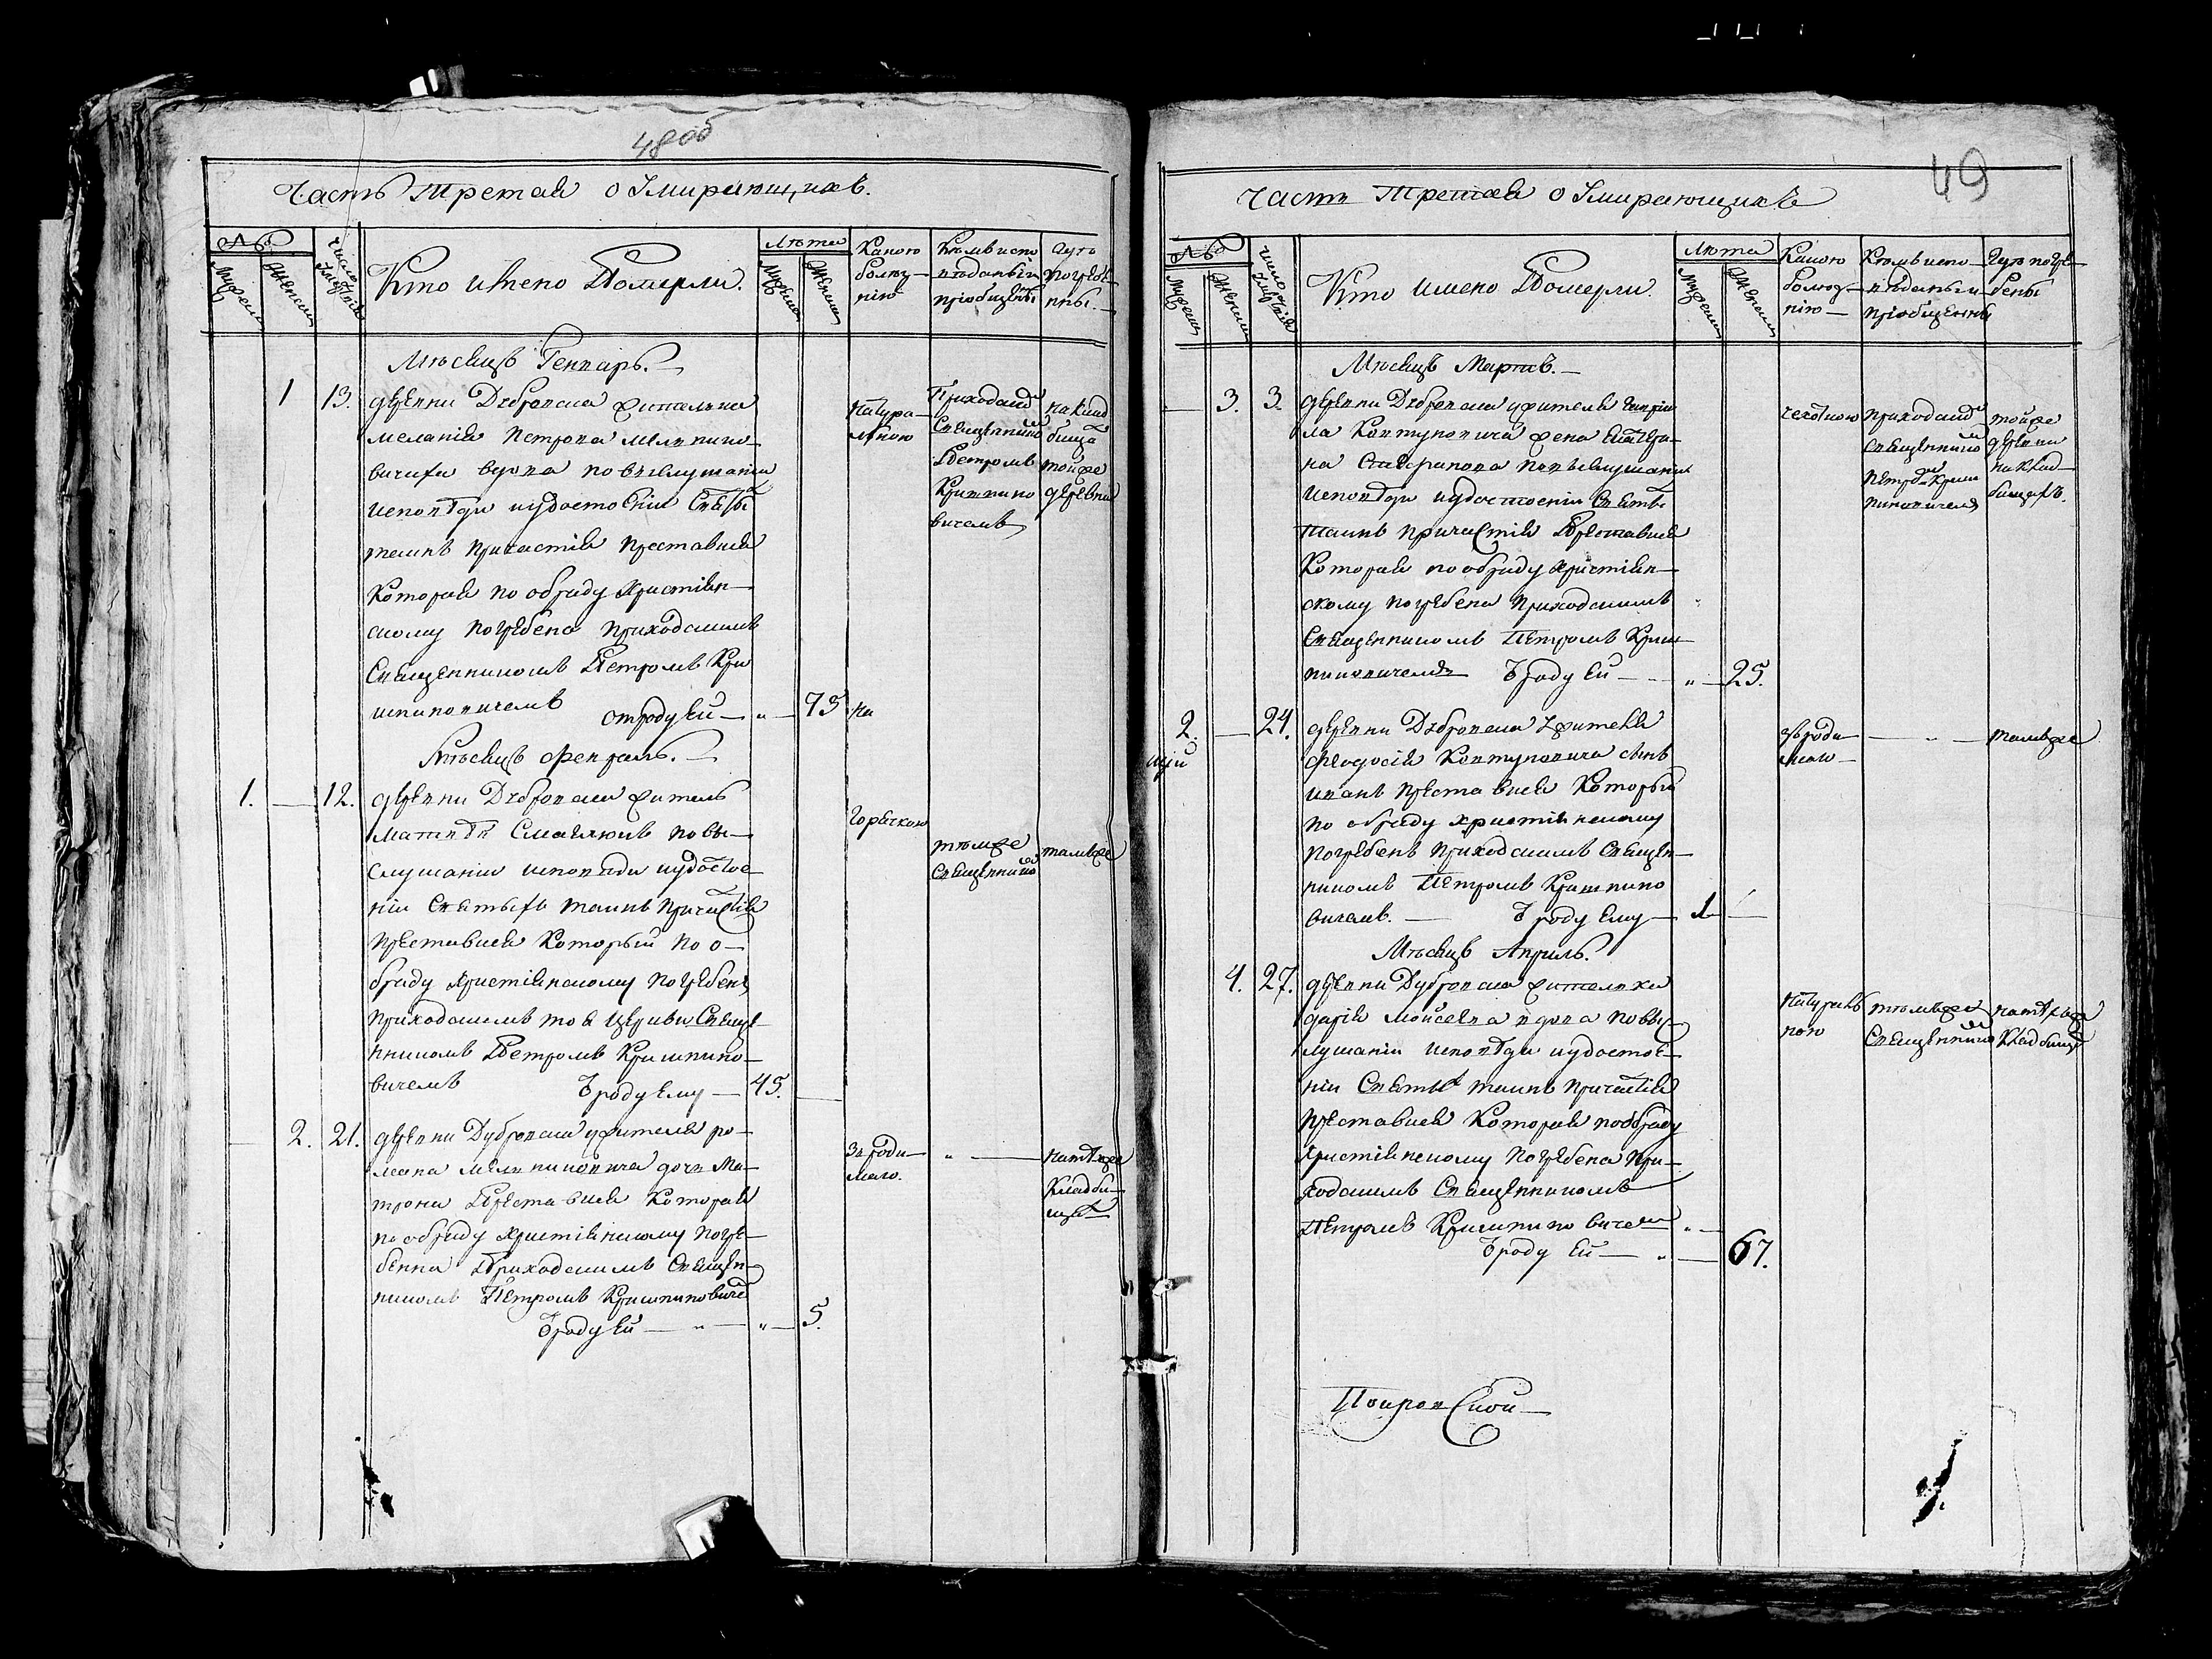 48 об
Часть третая о Умирающихъ.
№
Числo Умертвія
Кто имено Померли.
Лѣта
Какою болѣзнію
Кѣмъ исповѣданы и пріобщены
Гдѣ погребены.
Мужеск
Женски
Мѣсяцъ Генварь.
1 13. деревни Дубровска жителька
меланія Петрова
вдова по выслушаніи
исповѣди и удостоеніи Святы
таинъ причастія преставися
которая по обряду христіян-
скому погребена приходскимъ
Священникомъ Петромъ Кри
шпиновичемъ отроду ей — „ — 75
натура-
лною
Приходским
Священнико
Петромъ
Кришпино
вичемъ
на клад
бища
тойже
деревни
Мѣсяцъ февраль.
1. — 12. деревни Дубровска житель
матвѣй по вы-
слушаніи исповѣди и удостое-
ніи Святыхъ таинъ причастія
преставися который по о-
бряду христіянскому погребенъ
приходскимъ тоя церкви Священ-
никомъ Петромъ Кришпино-
вичемъ Ѿроду ему — 45. —
горячкою
тѣмже
Священнико
тамъже
— 2. 21. деревни Дубровска жителя ро-
мана дочь Ма-
трона Преставися которая
по обряду христіянскому погре-
бенна Приходскимъ Священ-
никомъ Петромъ Кришпиновиче
Ѿроду ей — „ — „ — 5.
Зъ роди-
маго.
„ —
на тѣмже
Кладби-
щѣ
49
Часть Третая о Умирающихъ
№
Число Умертвія
Кто имено Померли.
Лѣта
Какою болѣз-нію —
Кѣмъ испо-вѣданы и пріобщены
Гдѣ погре-бены
Мужески
Женски
Мѣсяцъ Мартъ. —
— 3. 3. деревни Дубровска жителя гаврiи
ла Колтуновича жена Екатери-
на Стефанова по выслушаніи
исповѣди и удостоеніи Святы
таинъ причастія Преставися
которая по обряду христіян-
скому погребена приходскимъ
Священникомъ Петромъ Криш-
пиновичемъ Ѿроду ей — „ — 25.
чехоткою
приходским
Священнико
Петром Криш
пиновичемъ
тойже
деревни
на клад-
бищахъ.
2. — 24. деревни Дубровска Жителя
феодосія Колтуновича сынъ
иванъ преставися который
по обряду христіянскому
погребенъ приходскимъ Священ-
никомъ Петромъ Кришпино
вичемъ. — Ѿроду ему — 1 —
зъ роди-
маго —
— „ —
тамъже
Мѣсяцъ Априль.
4. 27. деревни Дубровска жителька
дарія Мойсеева вдова по вы-
слушаніи исповѣди и удостое-
ніи Святых таинъ причастія
преставися которая по обряду
христіянскому погребена при-
ходскимъ Священникомъ
Петромъ Кришпиновичем „ —
Ѿроду ей — „ — 67.
натураль
ною
тѣмъже
Священнико
на тѣхъже
Кладбищ